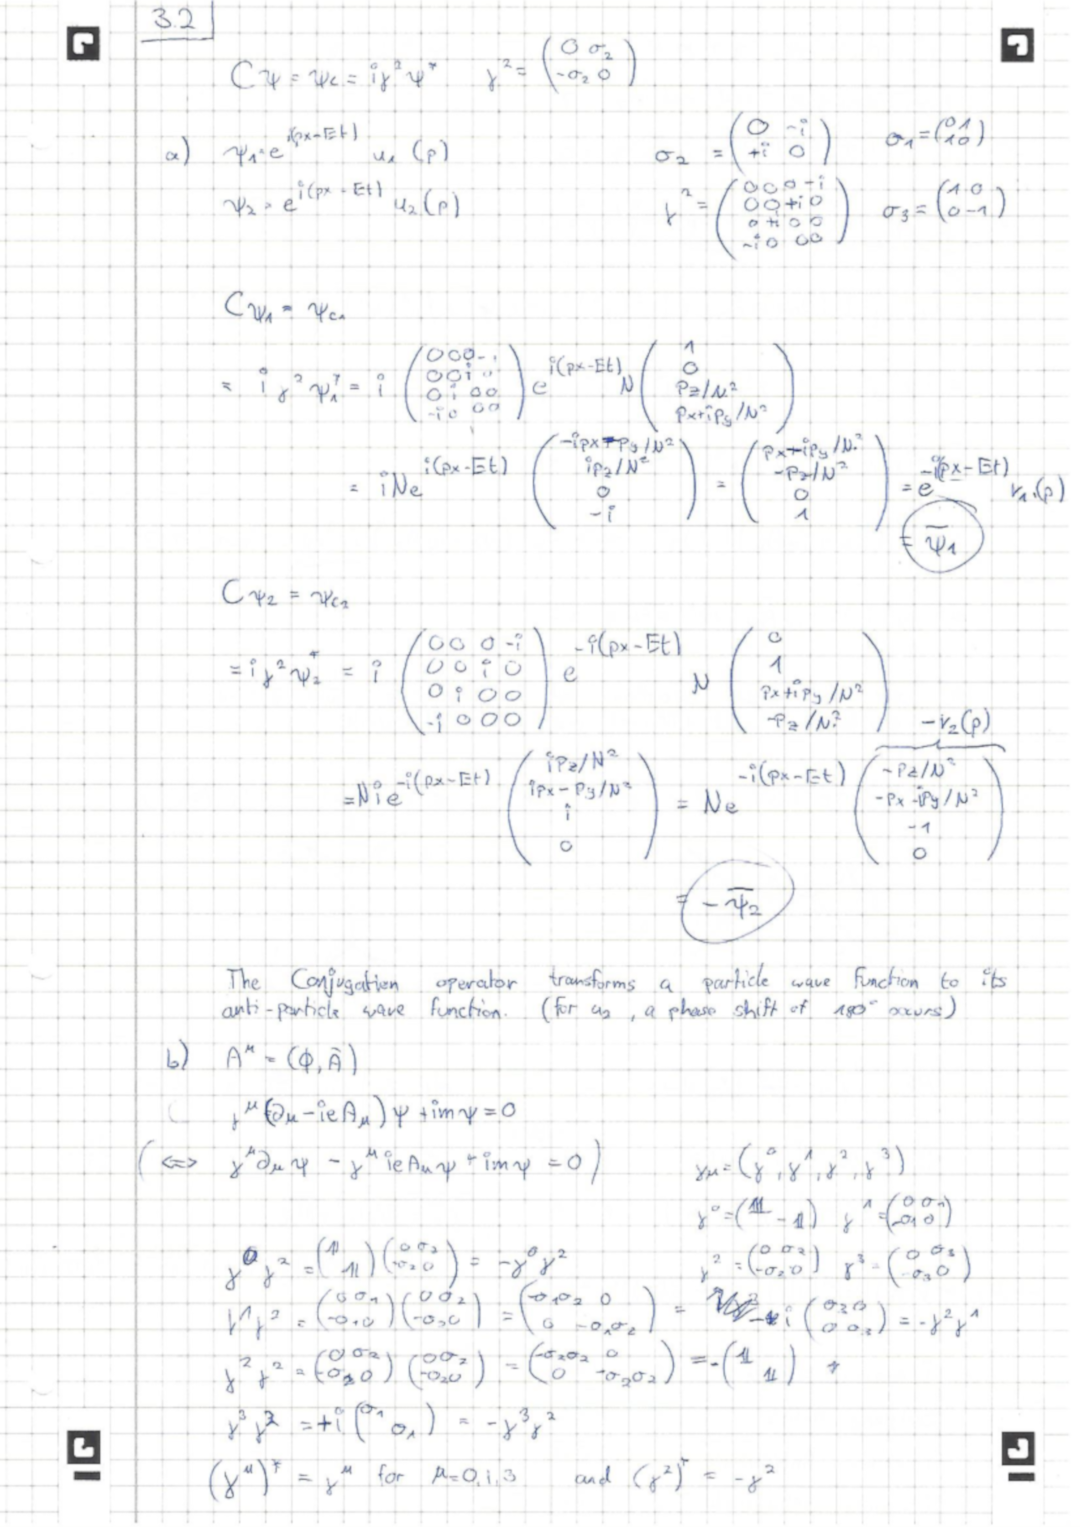 3.2
Cψ = ψc = iγ²ψ* γ² = (0 σ₂ / -σ₂ 0)
a) ψ₁ = e^{i(px-Et)} u₁(p) σ₂ = (0 -i / +i 0) σ₁ = (0 1 / 1 0)
ψ₂ = e^{i(px-Et)} u₂(p) γ² = (0 0 0 -i / 0 0 +i 0 / 0 +i 0 0 / -i 0 0 0) σ₃ = (1 0 / 0 -1)
Cψ₁ = ψc₁
= iγ²ψ₁* = i (0 0 0 -i / 0 0 i 0 / 0 i 0 0 / -i 0 0 0) e^{i(px-Et)} N (1 / 0 / Pz/N² / Px+iPy/N²)
= iNe^{i(px-Et)} (-ipx+Py/N² / iPz/N² / 0 / -i) = (Px-iPy/N² / -Pz/N² / 0 / 1) = e^{-i(px-Et)} v₁(p)
= ψ̄₁
Cψ₂ = ψc₂
= iγ²ψ₂* = i (0 0 0 -i / 0 0 i 0 / 0 i 0 0 / -i 0 0 0) e^{-i(px-Et)} N (0 / 1 / Px+iPy/N² / -Pz/N²)
-v₂(p)
= Nie^{-i(px-Et)} (iPz/N² / ipx-Py/N² / i / 0) = Ne^{-i(px-Et)} (-Pz/N² / -Px-iPy/N² / -1 / 0)
= -ψ̄₂
The Conjugation operator transforms a particle wave function to its
anti-particle wave function. (for u₂, a phase shift of 180° occurs)
b) A^μ = (Φ, Ā)
γ^μ(∂μ - ieAμ)ψ + imψ = 0
(⟺ γ^μ∂μψ - γ^μ ieAμψ + imψ = 0) γμ = (γ⁰, γ¹, γ², γ³)
γ⁰ = (𝟙 -𝟙) γ¹ = (0 σ₁ / -σ₁ 0)
γ⁰γ² = (𝟙 𝟙)(0 σ₂ / -σ₂ 0) = -γ⁰γ² γ² = (0 σ₂ / -σ₂ 0) γ³ = (0 σ₃ / -σ₃ 0)
γ¹γ² = (0 σ₁ / -σ₁ 0)(0 σ₂ / -σ₂ 0) = (-σ₁σ₂ 0 / 0 -σ₁σ₂) = -i (σ₃ 0 / 0 σ₃) = -γ²γ¹
γ²γ² = (0 σ₂ / -σ₂ 0)(0 σ₂ / -σ₂ 0) = (-σ₂σ₂ 0 / 0 -σ₂σ₂) = -(𝟙 𝟙)
γ³γ² = +i (σ₁ σ₁) = -γ³γ²
(γ^μ)* = γ^μ for μ=0,1,3 and (γ²)* = -γ²